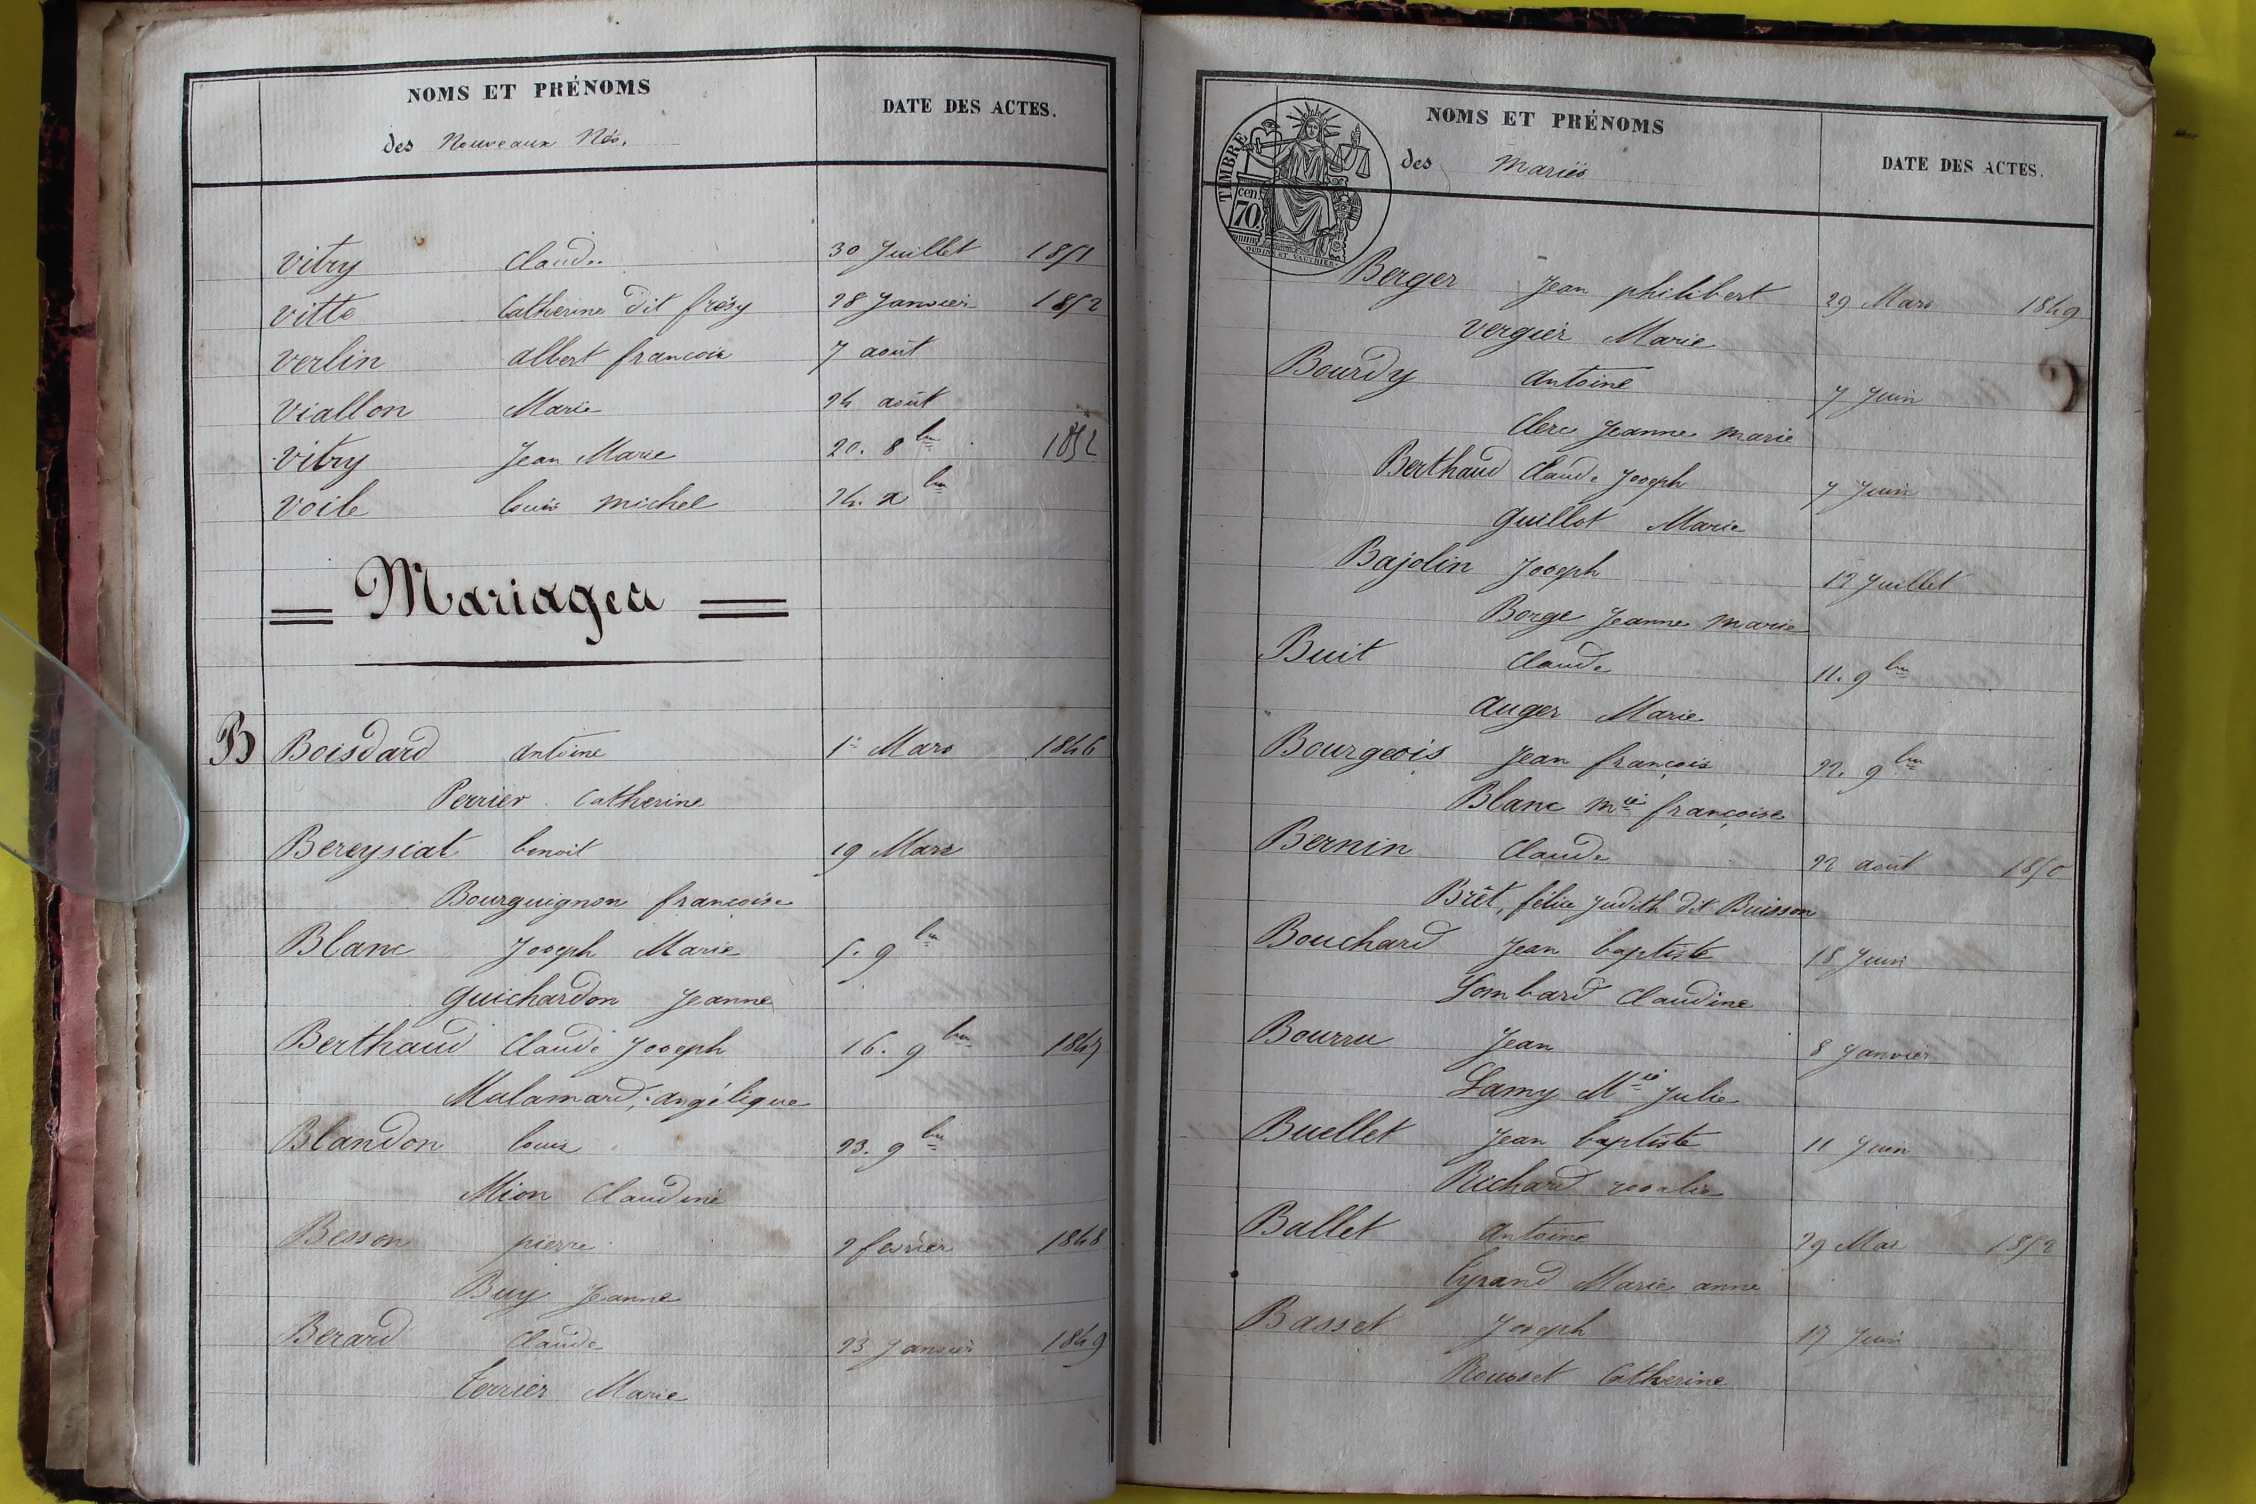 NOMS ET PRÉNOMS
des Nouveaux Nés.
DATE DES ACTES.
Vitry Claude 30 Juillet 1851
Vitte Catherine dit frésy 28 Janvier 1852
Verlin albert francois 7 août
Viallon Marie 24 août
Vitry Jean Marie 20. 8bre 1852
Voile louis michel 24. xbre
Mariages
B Boisdard antoine 1er Mars 1846
Perrier Catherine
Bereysiat benoit 19 Mars
Bourguignon francoise
Blanc Joseph Marie 5. 9bre
Guichardon Jeanne
Berthaud Claude Joseph 16. 9bre 1847
Mulamard, angélique
Blandon louis 23. 9bre
Mion Claudine
Besson pierre 2 fevrier 1848
Buy Jeanne
Berard Claude 23 Janvier 1849
terrier Marie
TIMBRE
cen
70.
OUDINE ET GAUTHIER
NOMS ET PRÉNOMS
des Mariés
DATE DES ACTES.
Berger Jean philibert 29 Mars 1849
Vergier Marie
Bourdy antoine 7 Juin
Clerc Jeanne marie
Berthaud Claude Joseph 7 Juin
Guillot Marie
Bajolin Joseph 12 Juillet
Borge Jeanne marie
Buit Claude 11. 9bre
auger Marie
Bourgeois Jean françois 22. 9bre
Blanc mie françoise
Bernin Claude 22 août 1850
Brêt, félice Judith dit Buisson
Bouchard Jean baptiste 18 Juin
Lombard Claudine
Bourru Jean 8 Janvier
Lamy Mie Julie
Buellet Jean baptiste 11 Juin
Richard rosalie
Ballet antoine 29 Mai 1852
tyrand Marie anne
Basset Joseph 17 Juin
Rousset Catherine